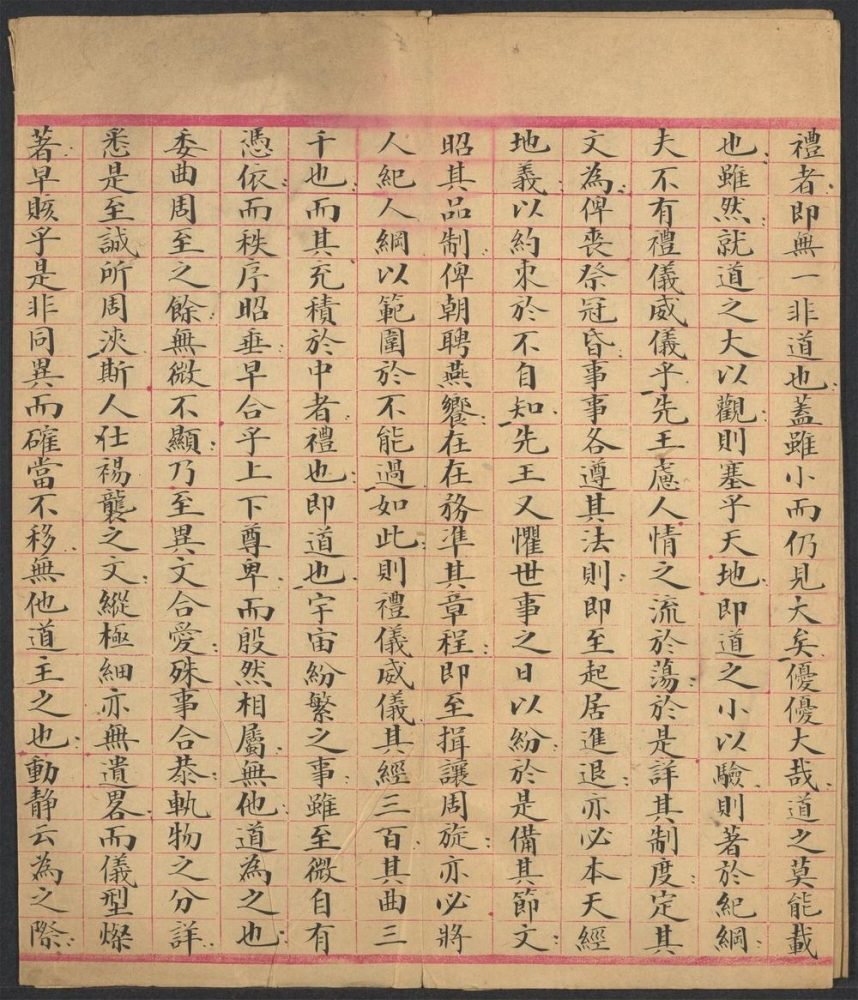 禮者即無一非道也蓋雖小而仍見大矣優優大哉道之莫能載
也雖然就道之大以觀則塞乎天地即道之小以驗則著於紀綱
夫不有禮儀威儀乎先王慮人情之流於蕩於是詳其制度定其
文為俾喪祭冠昏事事各遵其法則即至起居進退亦必本天經
地義以約束於不自知先王又懼世事之日以紛於是備其節文
昭其品制俾朝聘燕饗在在務準其章程即至揖讓周旋亦必將
人紀人綱以範圍於不能過如此則禮儀威儀其經三百其曲三
千也而其充積於中者禮也即道也宇宙紛繁之事雖至微自有
憑依而秩序昭垂早合乎上下尊卑而殷然相屬無他道為之也
委曲周至之餘無微不顯乃至異文合愛殊事合恭軌物之分詳
悉是至誠所周浹斯人仕裼襲之文縱極細亦無遺畧而儀型燦
著早賅乎是非同異而確當不移無他道主之也動静云為之際